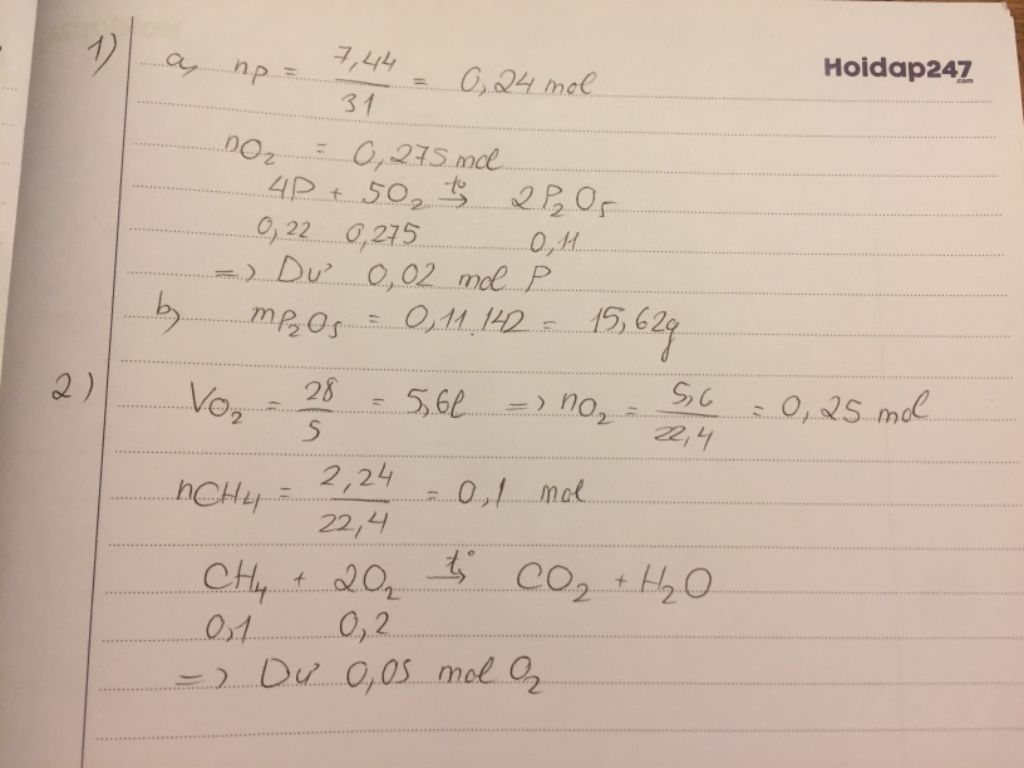 Hoidap247
.com
1) a, nP = 7,44/31 = 0,24 mol
nO₂ = 0,275 mol
4P + 5O₂ →t° 2P₂O₅
0,22 0,275 0,11
=> Dư 0,02 mol P
b) mP₂O₅ = 0,11.142 = 15,62g
2) VO₂ = 28/5 = 5,6l => nO₂ = 5,6/22,4 = 0,25 mol
nCH₄ = 2,24/22,4 = 0,1 mol
CH₄ + 2O₂ →t° CO₂ + H₂O
0,1 0,2
=> Dư 0,05 mol O₂